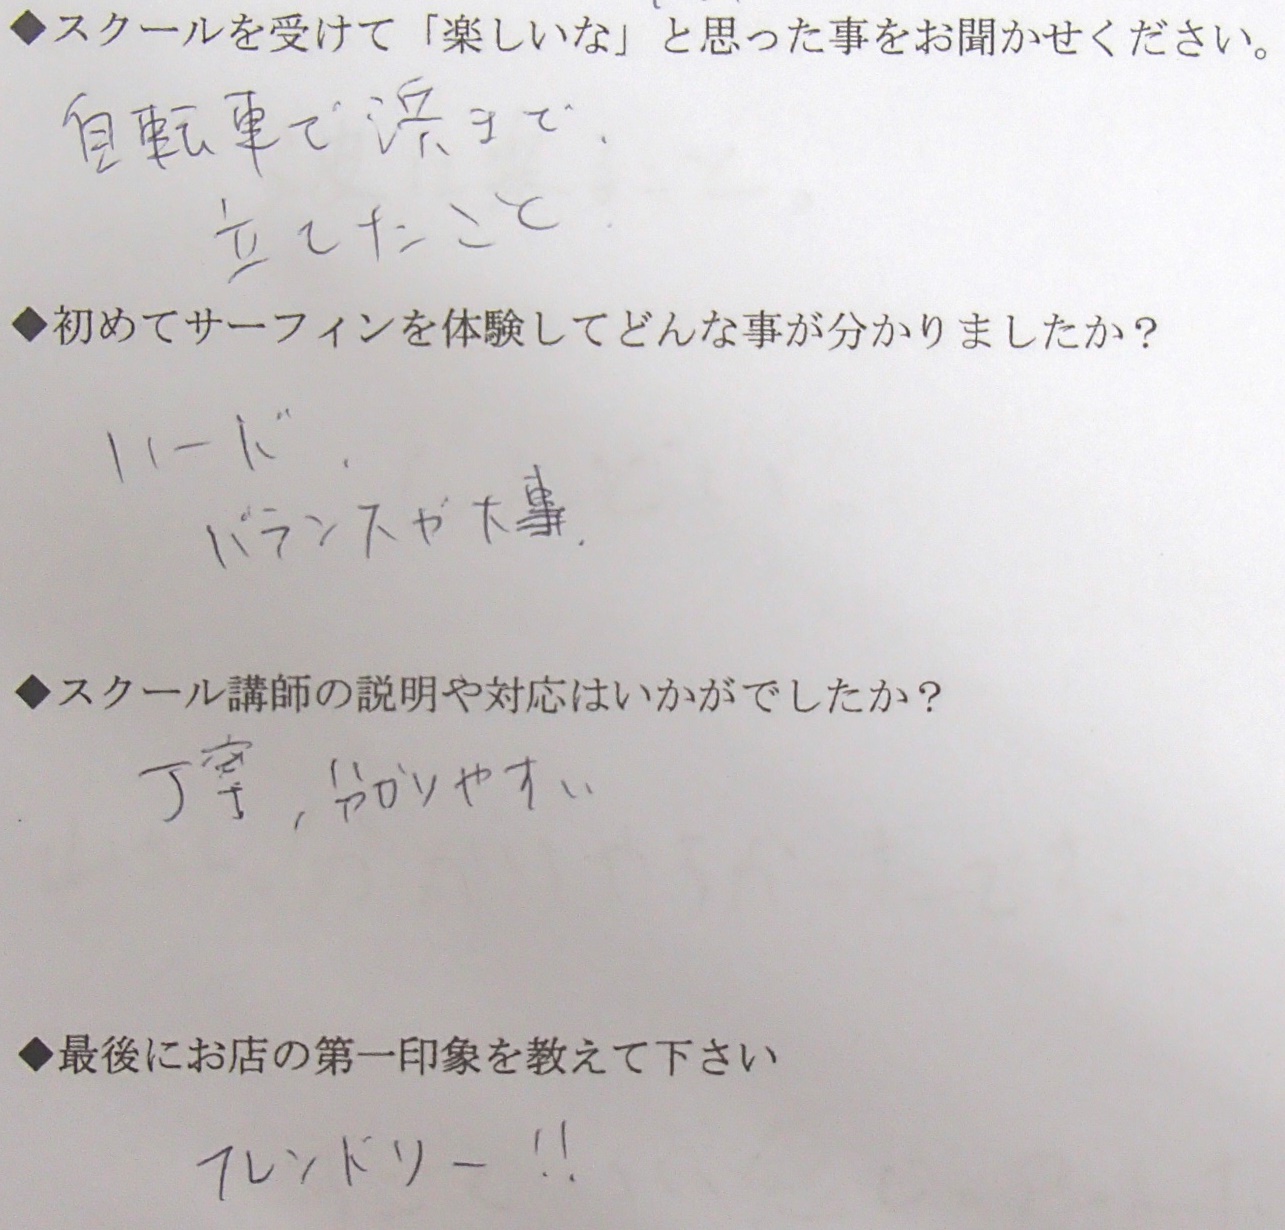 ◆スクールを受けて「楽しいな」と思った事をお聞かせください。
自転車で浜まで.
立てたこと.
◆初めてサーフィンを体験してどんな事が分かりましたか？
ハード.
バランスが大事.
◆スクール講師の説明や対応はいかがでしたか？
丁寧, 分かりやすい
◆最後にお店の第一印象を教えて下さい
フレンドリー!!